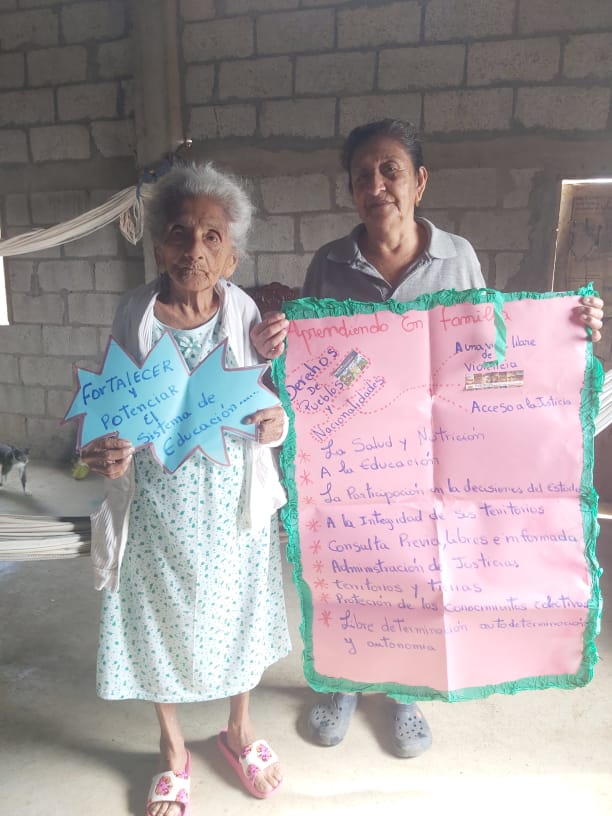 FORTALECER
y
POTENCIAR
EL
Sistema de
Educación.....
Aprendiendo En familia
Derechos
DE
Pueblos
y
Nacionalidades
A una vida libre
de
Violencia
Acceso a la Justicia
* La Salud y Nutrición
* A la Educación
* La Participación en la decisiones del Estado
* A la Integridad de sus territorios
* Consulta Previa Libres e informada
* Administración de Justicias
* territorios y tierras
* Proteción de los Conocimientos colectivos
* Libre determinación autodeterminación
y autonomia